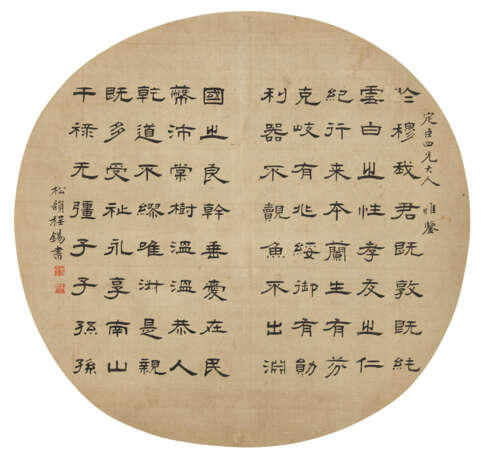 定臣四兄大人 雅鑒
於穆我君既敦既純
雪白之性孝友之仁
紀行来本蘭生有芬
克岐有兆綏御有勛
利器不覿魚不出淵
國之良幹垂愛在民
蔽沛棠樹溫溫恭人
乾道不繆唯淑是親
既多受祉永享南山
干祿无疆子子孫孫
松韻程錫書